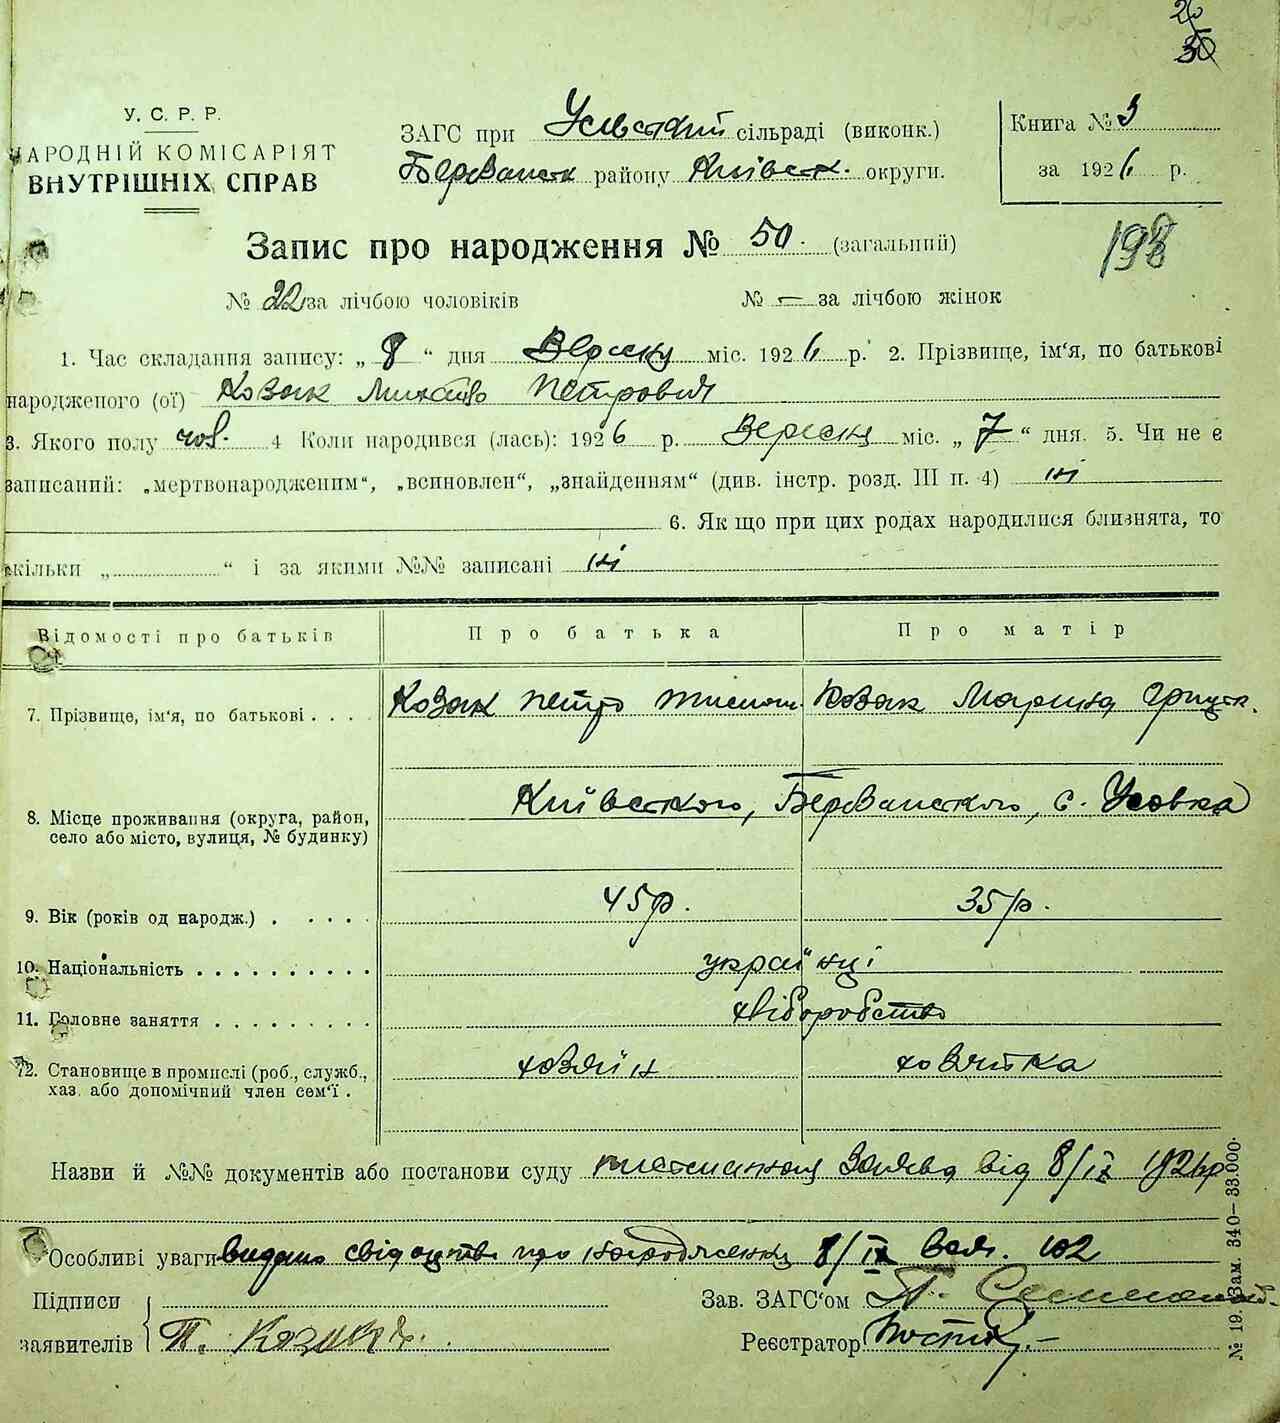 30
У. С. Р. Р.
НАРОДНІЙ КОМІСАРІЯТ
ВНУТРІШНІХ СПРАВ
ЗАГС при сільраді (виконк.)
району Київськ. округи.
Книга № 3
за 1926 р.
Запис про народження № 50. (загальний)
198
№ 22 за лічбою чоловіків № — за лічбою жінок
1. Час складання запису: „ 8 “ дня Вересня міс. 1926 р. 2. Прізвище, ім'я, по батькові
народженого (ої) Козак Михайло Петрович
3. Якого полу чов. 4 Коли народився (лась): 1926 р. Вересня міс. „ 7 “ дня. 5. Чи не є
записаний: „мертвонародженим“, „всиновлен“, „знайденням“ (див. інстр. розд. III п. 4) ні
6. Якщо при цих родах народилися близнята, то
скільки „ “ і за якими №№ записані ні
Відомості про батьків Про батька Про матір
7. Прізвище, ім'я, по батькові . . . . Козак Петро Козак Марина Грицьк.
8. Місце проживання (округа, район, село або місто, вулиця, № будинку) Київського, с. Усовка
9. Вік (років од народж.) . . . . . 45 р. 35 р.
10. Національність . . . . . . . . . . українці
11. Головне заняття . . . . . . . . . хліборобство
12. Становище в промислі (роб., служб., хаз. або допомічний член сем'ї . хозяїн хозяйка
Назви й №№ документів або постанови суду заява від 8/IX 1926 р
Особливі уваги видано свідоцтво про народження 8/IX 102
Підписи
заявителів П. Козак
Зав. ЗАГС'ом П.
Реєстратор
№ 19. Зам. 340—33.000.